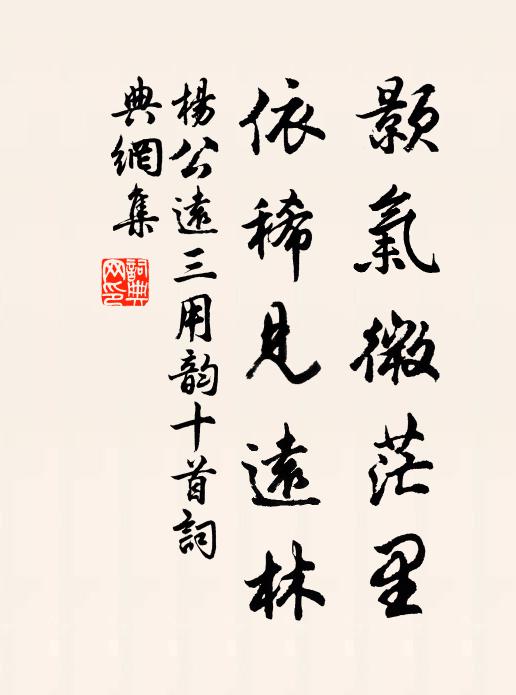 颢氣微茫里
依稀見遠林
楊公遠三用韵十首詞
典網集
詞典
网印